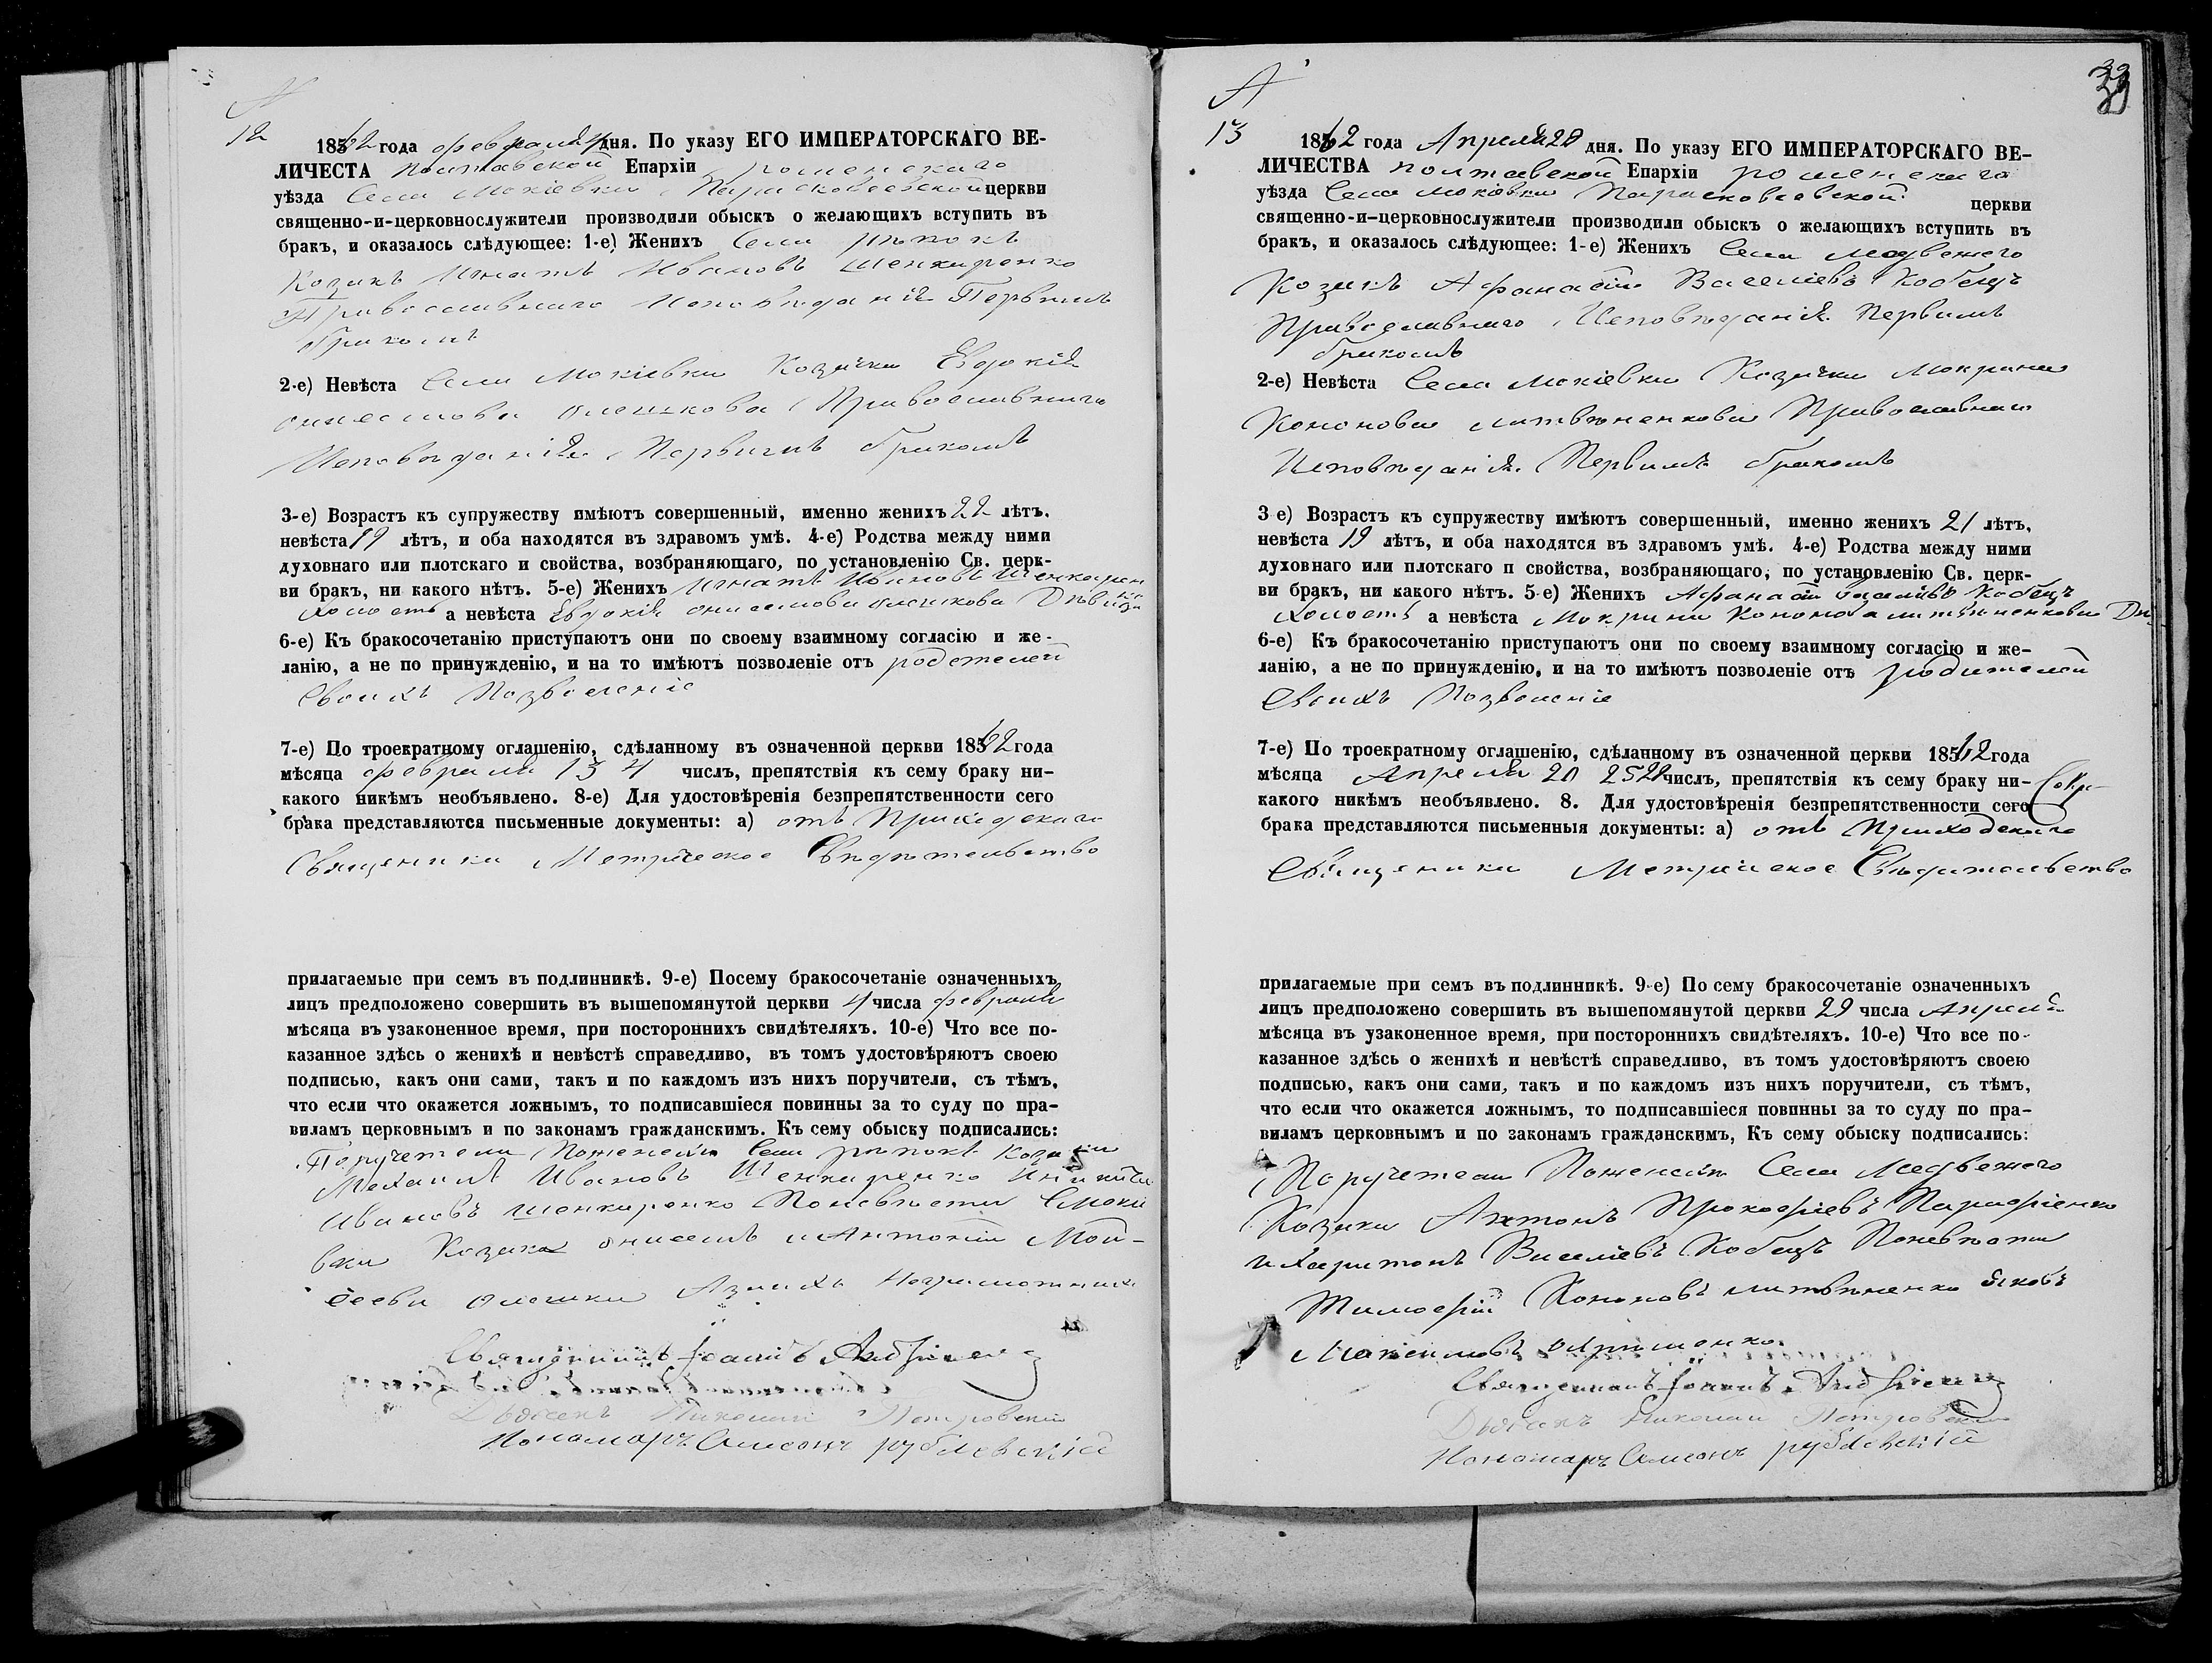 12
1862 года февраля 4 дня. По указу ЕГО ИМПЕРАТОРСКАГО ВЕ-
ЛИЧЕСТА Полтавской Епархіи роменскаго
уѣзда Села Мокіевки Парасковеевской церкви
священно-и-церковнослужители производили обыскъ о желающихъ вступить въ
бракъ, и оказалось слѣдующее: 1-е) Женихъ Села
Козакъ Игнатъ Ивановъ Шенкаренко
Православнаго Исповѣданія Первымъ
бракомъ
2-е) Невѣста Села Мокіевки Козачка Евдокія
Онисимова Олешкова Православнаго
Исповѣданія Первымъ бракомъ
3-е) Возрастъ къ супружеству имѣютъ совершенный, именно женихъ 22 лѣтъ.
невѣста 19 лѣтъ, и оба находятся въ здравомъ умѣ. 4-е) Родства между ними
духовнаго или плотскаго и свойства, возбраняющаго, по установленію Св. церк-
ви бракъ, ни какого нѣтъ. 5-е) Женихъ Игнатъ Ивановъ Шенкарен
ко
Холостъ а невѣста Евдокія Онисимова Олешкова Дѣвица
6-е) Къ бракосочетанію приступаютъ они по своему взаимному согласію и же-
ланію, а не по принужденію, и на то имѣютъ позволеніе отъ родителей
Своихъ Позволеніе
7-е) По троекратному оглашенію, сдѣланному въ означенной церкви 1862 года
мѣсяца февраля 1 3 4 числъ, препятствія къ сему браку ни-
какого никѣмъ необъявлено. 8-е) Для удостовѣренія безпрепятственности сего
брака представляются письменные документы: а) отъ Приходскаго
Священника Метрическое Свѣдѣтельство
прилагаемые при семъ въ подлинникѣ. 9-е) Посему бракосочетаніе означенныхъ
лицъ предположено совершить въ вышепомянутой церкви 4 числа февраля
мѣсяца въ узаконенное время, при постороннихъ свидѣтеляхъ. 10-е) Что все по-
казанное здѣсь о женихѣ и невѣстѣ справедливо, въ томъ удостовѣряютъ своею
подписью, какъ они сами, такъ и по каждомъ изъ нихъ поручители, съ тѣмъ,
что если что окажется ложнымъ, то подписавшіеся повинны за то суду по пра-
виламъ церковнымъ и по законамъ гражданскимъ. Къ сему обыску подписались:
Поручетели Поженихи Села Козаки
Михаилъ Ивановъ Шенкаренко
Ивановъ Шенкаренко Поневѣсти Смокі
вки Козаки Онисимъ и Антоній Мой-
сеевы Олешки
Священникъ Іоаннъ
Дьячекъ Николай Петровскій
Пономарь Симеонъ рублевскій
13
1862 года Апреля 29 дня. По указу ЕГО ИМПЕРАТОРСКАГО ВЕ-
ЛИЧЕСТВА полтавской Епархіи роменскаго
уѣзда Села Мокіевки Парасковеевской церкви
священно-и-церковнослужители производили обыскъ о желающихъ вступить въ
бракъ, и оказалось слѣдующее: 1-е) Женихъ Села Медвежего
Козакъ Афанасій Василіевъ Кобецъ
Православнаго Исповѣданія Первымъ
бракомъ
2-е) Невѣста Села Мокіевки Козачка Мокрина
Кононова Литвѣненкова Православнаго
Исповѣданія Первымъ бракомъ
3 е) Возрастъ къ супружеству имѣютъ совершенный, именно женихъ 21 лѣтъ,
невѣста 19 лѣтъ, и оба находятся въ здравомъ умѣ. 4-е) Родства между ними
духовнаго или плотскаго п свойства, возбраняющаго, по установленію Св. церк-
ви бракъ, ни какого нѣтъ. 5-е) Женихъ Афанасій Василіевъ Кобецъ
Холостъ а невѣста Мокрина Кононова Литвѣненкова Дѣ
6-е) Къ бракосочетанію приступаютъ они по своему взаимному согласію и же-
ланію, а не по принужденію, и на то имѣютъ позволеніе отъ родителей
Своихъ Позволеніе
7-е) По троекратному оглашенію, сдѣланному въ означенной церкви 1862 года
мѣсяца Апреля 20 25 29 числъ, препятствія къ сему браку ни-
какого никѣмъ необъявлено. 8. Для удостовѣренія безпрепятственности сего
брака представляются письменныя документы: а) отъ Приходскаго
Священника Метрическое Свѣдѣтельство
прилагаемые при семъ въ подлинникѣ. 9-е) По сему бракосочетаніе означенныхъ
лицъ предположено совершить въ вышепомянутой церкви 29 числа Апреля
мѣсяца въ узаконенное время, при постороннихъ свидѣтеляхъ. 10-е) Что все по-
казанное здѣсь о женихѣ и невѣстѣ справедливо, въ томъ удостовѣряютъ своею
подписью, какъ они сами, такъ и по каждомъ изъ нихъ поручители, съ тѣмъ,
что если что окажется ложнымъ, то подписавшіеся повинны за то суду по пра-
виламъ церковнымъ и по законамъ гражданскимъ, Къ сему обыску подписались:
Поручетели Поженихи Села Медвежего
Козаки Антонъ Прокофіевъ Парафіенко
и Харитонъ Василіевъ Кобецъ Поневѣсти
Тимофій Кононовъ Литвѣненко Яковъ
Максимовъ
Священникъ Іоаннъ
Дьячекъ Николай Петровскій
Пономарь Симеонъ рублевскій